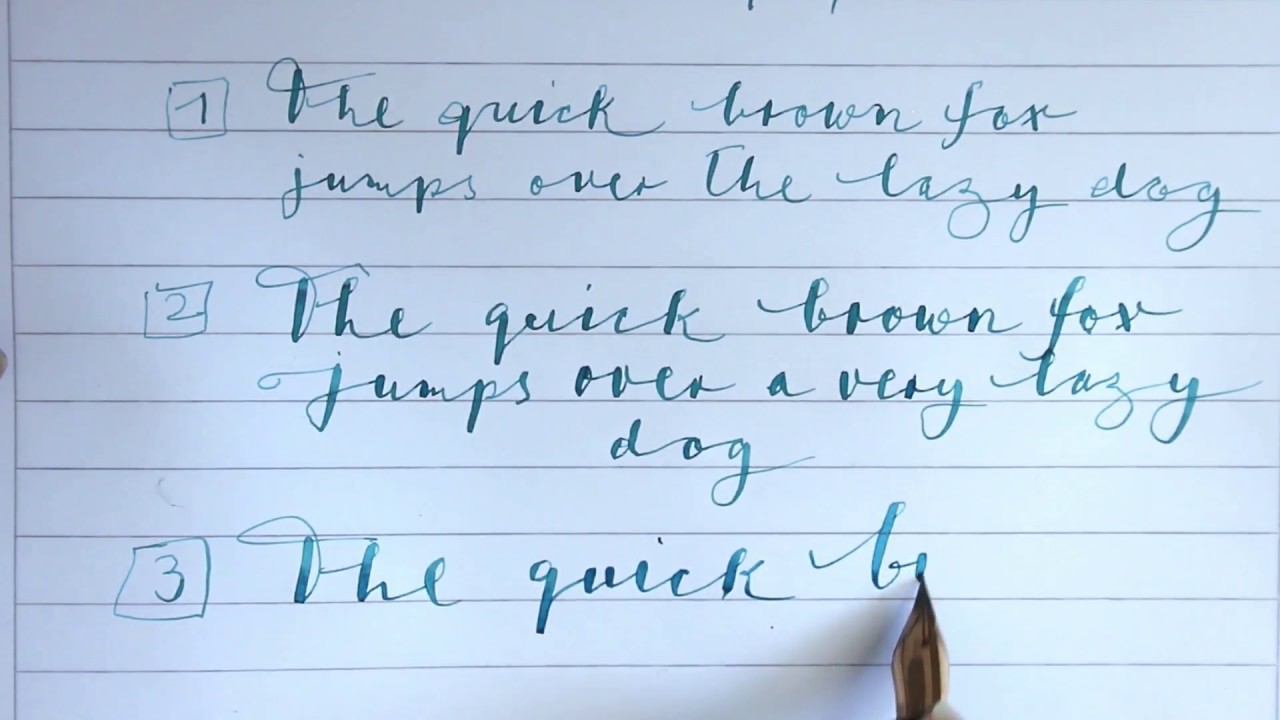 1 The quick brown fox
jumps over the lazy dog
2 The quick brown fox
jumps over a very lazy
dog
3 The quick b